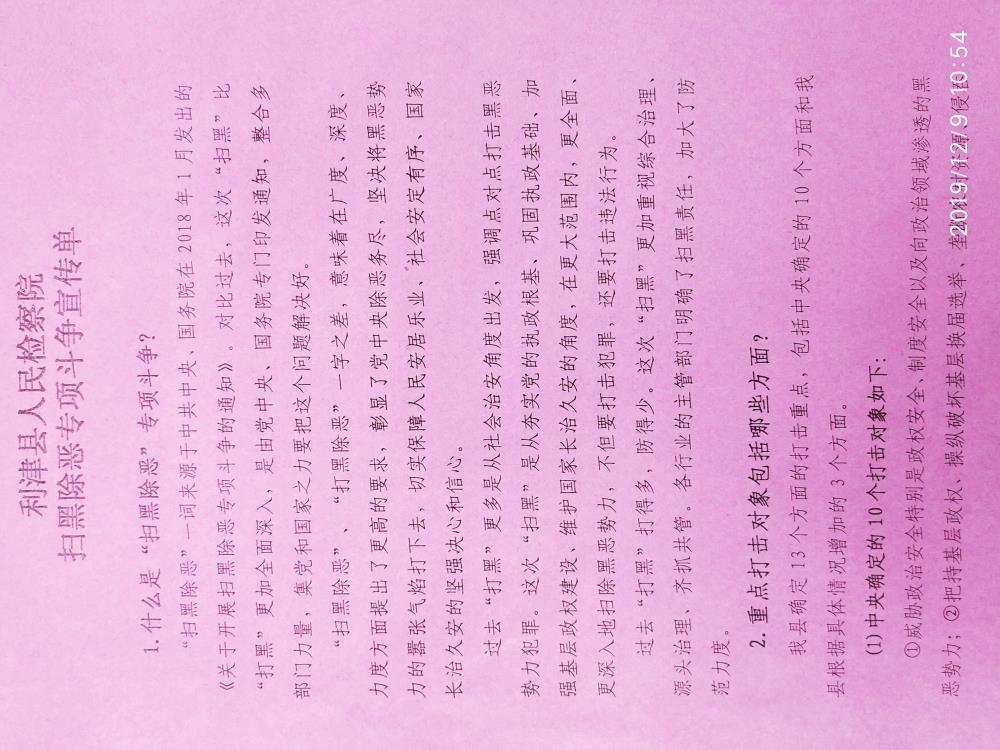 利津县人民检察院
扫黑除恶专项斗争宣传单
1.什么是“扫黑除恶”专项斗争？
“扫黑除恶”一词来源于中共中央、国务院在2018年1月发出的
《关于开展扫黑除恶专项斗争的通知》。对比过去，这次“扫黑”比
“打黑”更加全面深入，是由党中央、国务院专门印发通知，整合多
部门力量，集党和国家之力要把这个问题解决好。
“扫黑除恶”、“打黑除恶”一字之差，意味着在广度、深度、
力度方面提出了更高的要求，彰显了党中央除恶务尽，坚决将黑恶势
力的嚣张气焰打下去，切实保障人民安居乐业、社会安定有序、国家
长治久安的坚强决心和信心。
过去“打黑”更多是从社会治安角度出发，强调点对点打击黑恶
势力犯罪。这次“扫黑”是从夯实党的执政根基、巩固执政基础、加
强基层政权建设、维护国家长治久安的角度，在更大范围内，更全面、
更深入地扫除黑恶势力，不但要打击犯罪，还要打击违法行为。
过去“打黑”打得多，防得少。这次“扫黑”更加重视综合治理、
源头治理、齐抓共管。各行业的主管部门明确了扫黑责任，加大了防
范力度。
2.重点打击对象包括哪些方面？
我县确定13个方面的打击重点，包括中央确定的10个方面和我
县根据具体情况增加的3个方面。
(1)中央确定的10个打击对象如下：
①威胁政治安全特别是政权安全、制度安全以及向政治领域渗透的黑
恶势力；②把持基层政权、操纵破坏基层换届选举、垄断农村资源、侵吞
2019/12/9 10:54